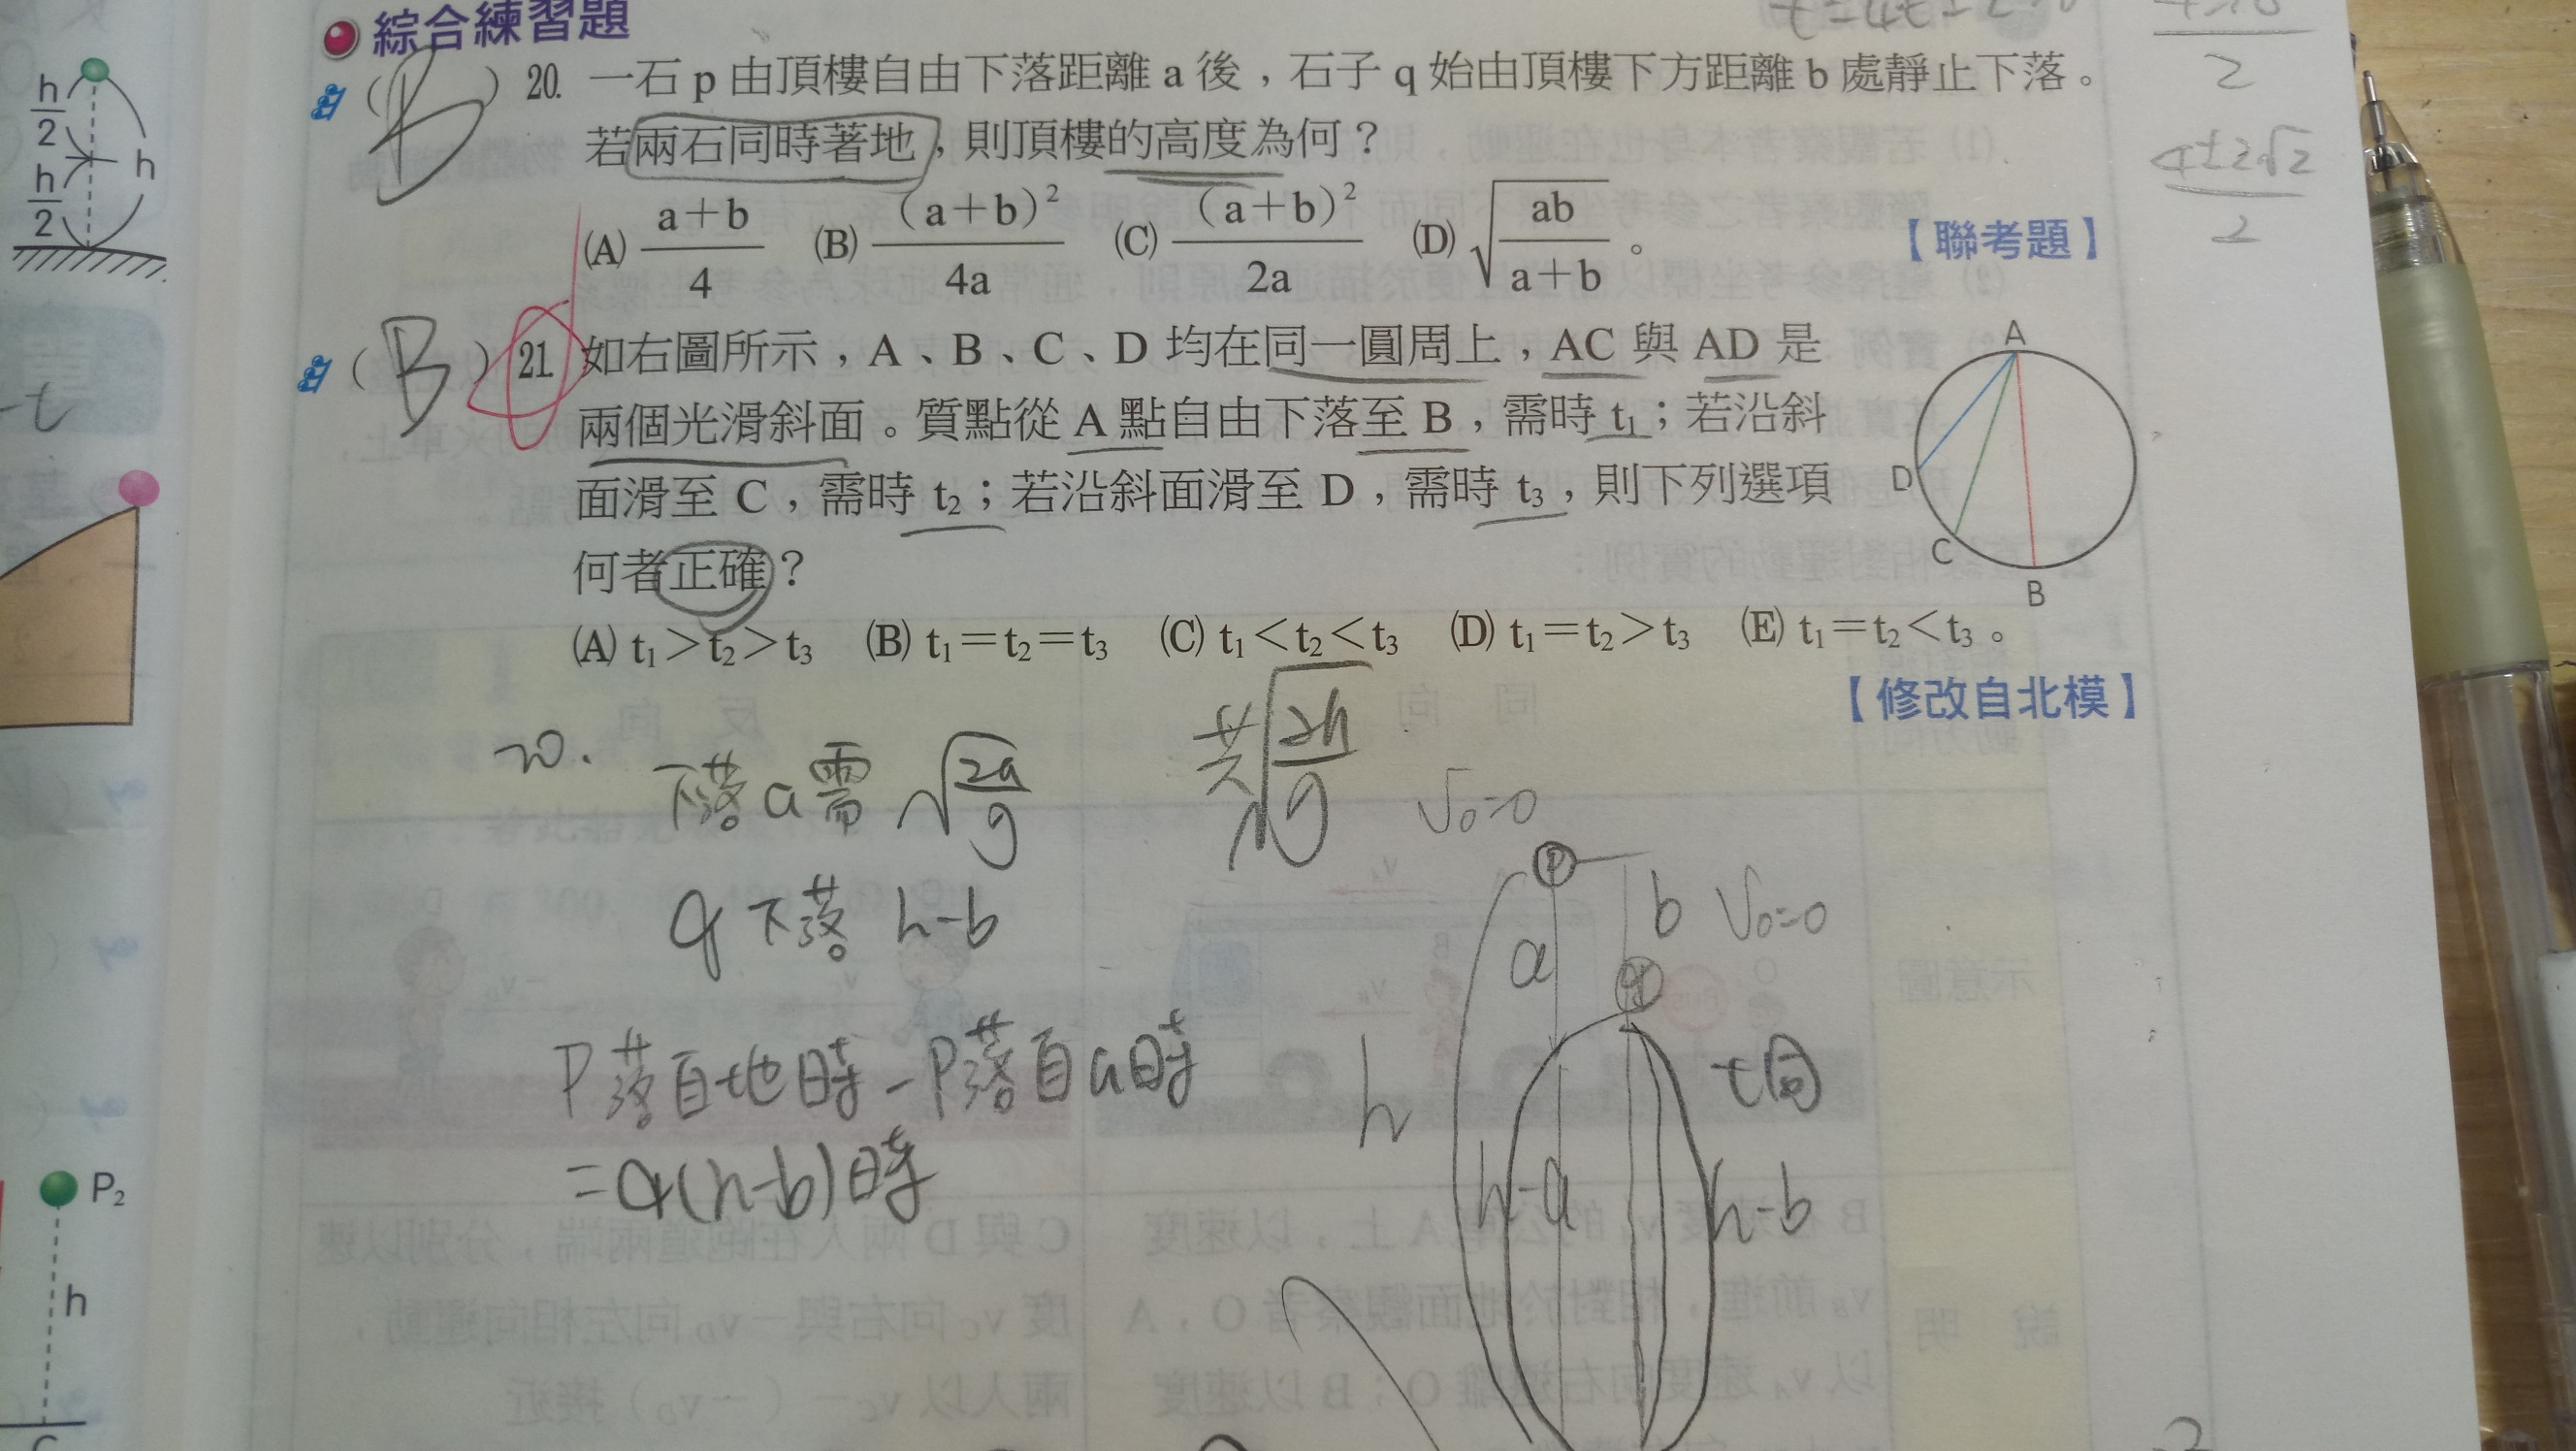 綜合練習題
(B) 20. 一石 p 由頂樓自由下落距離 a 後，石子 q 始由頂樓下方距離 b 處靜止下落。
若兩石同時著地，則頂樓的高度為何？
(A) (a+b)/4 (B) (a+b)²/4a (C) (a+b)²/2a (D) √(ab/(a+b))。
【聯考題】
(B) 21. 如右圖所示，A、B、C、D 均在同一圓周上，AC 與 AD 是
兩個光滑斜面。質點從 A 點自由下落至 B，需時 t₁；若沿斜
面滑至 C，需時 t₂；若沿斜面滑至 D，需時 t₃，則下列選項
何者正確？
(A) t₁＞t₂＞t₃ (B) t₁＝t₂＝t₃ (C) t₁＜t₂＜t₃ (D) t₁＝t₂＞t₃ (E) t₁＝t₂＜t₃。
【修改自北模】
A
D
C
B
h/2
h/2
h
-t
P₂
h
2
4±2√2
2
20. 下落 a 需 √(2a/g)
共√(2h/g)
q 下落 h-b
P落自地時-P落自a時
=q(h-b)時
V₀=0
P
b V₀=0
a
q
h
t同
h-a
h-b